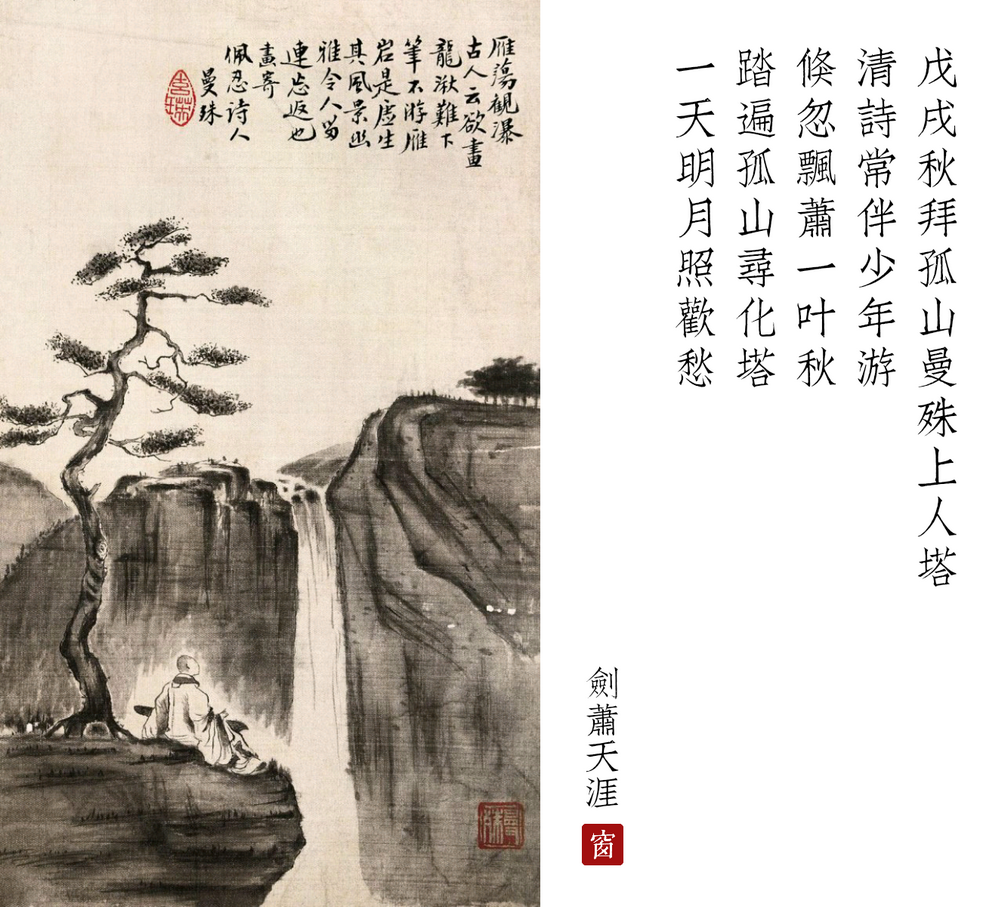 戊戌秋拜孤山曼殊上人塔
清詩常伴少年游
倏忽飄蕭一叶秋
踏遍孤山尋化塔
一天明月照歡愁
劍蕭天涯
窗
雁蕩觀瀑
古人云欲畫
龍湫難下
筆不游雁
宕是虛生
其風景幽
雅令人留
連忘返也
畫寄
佩忍詩人
曼殊